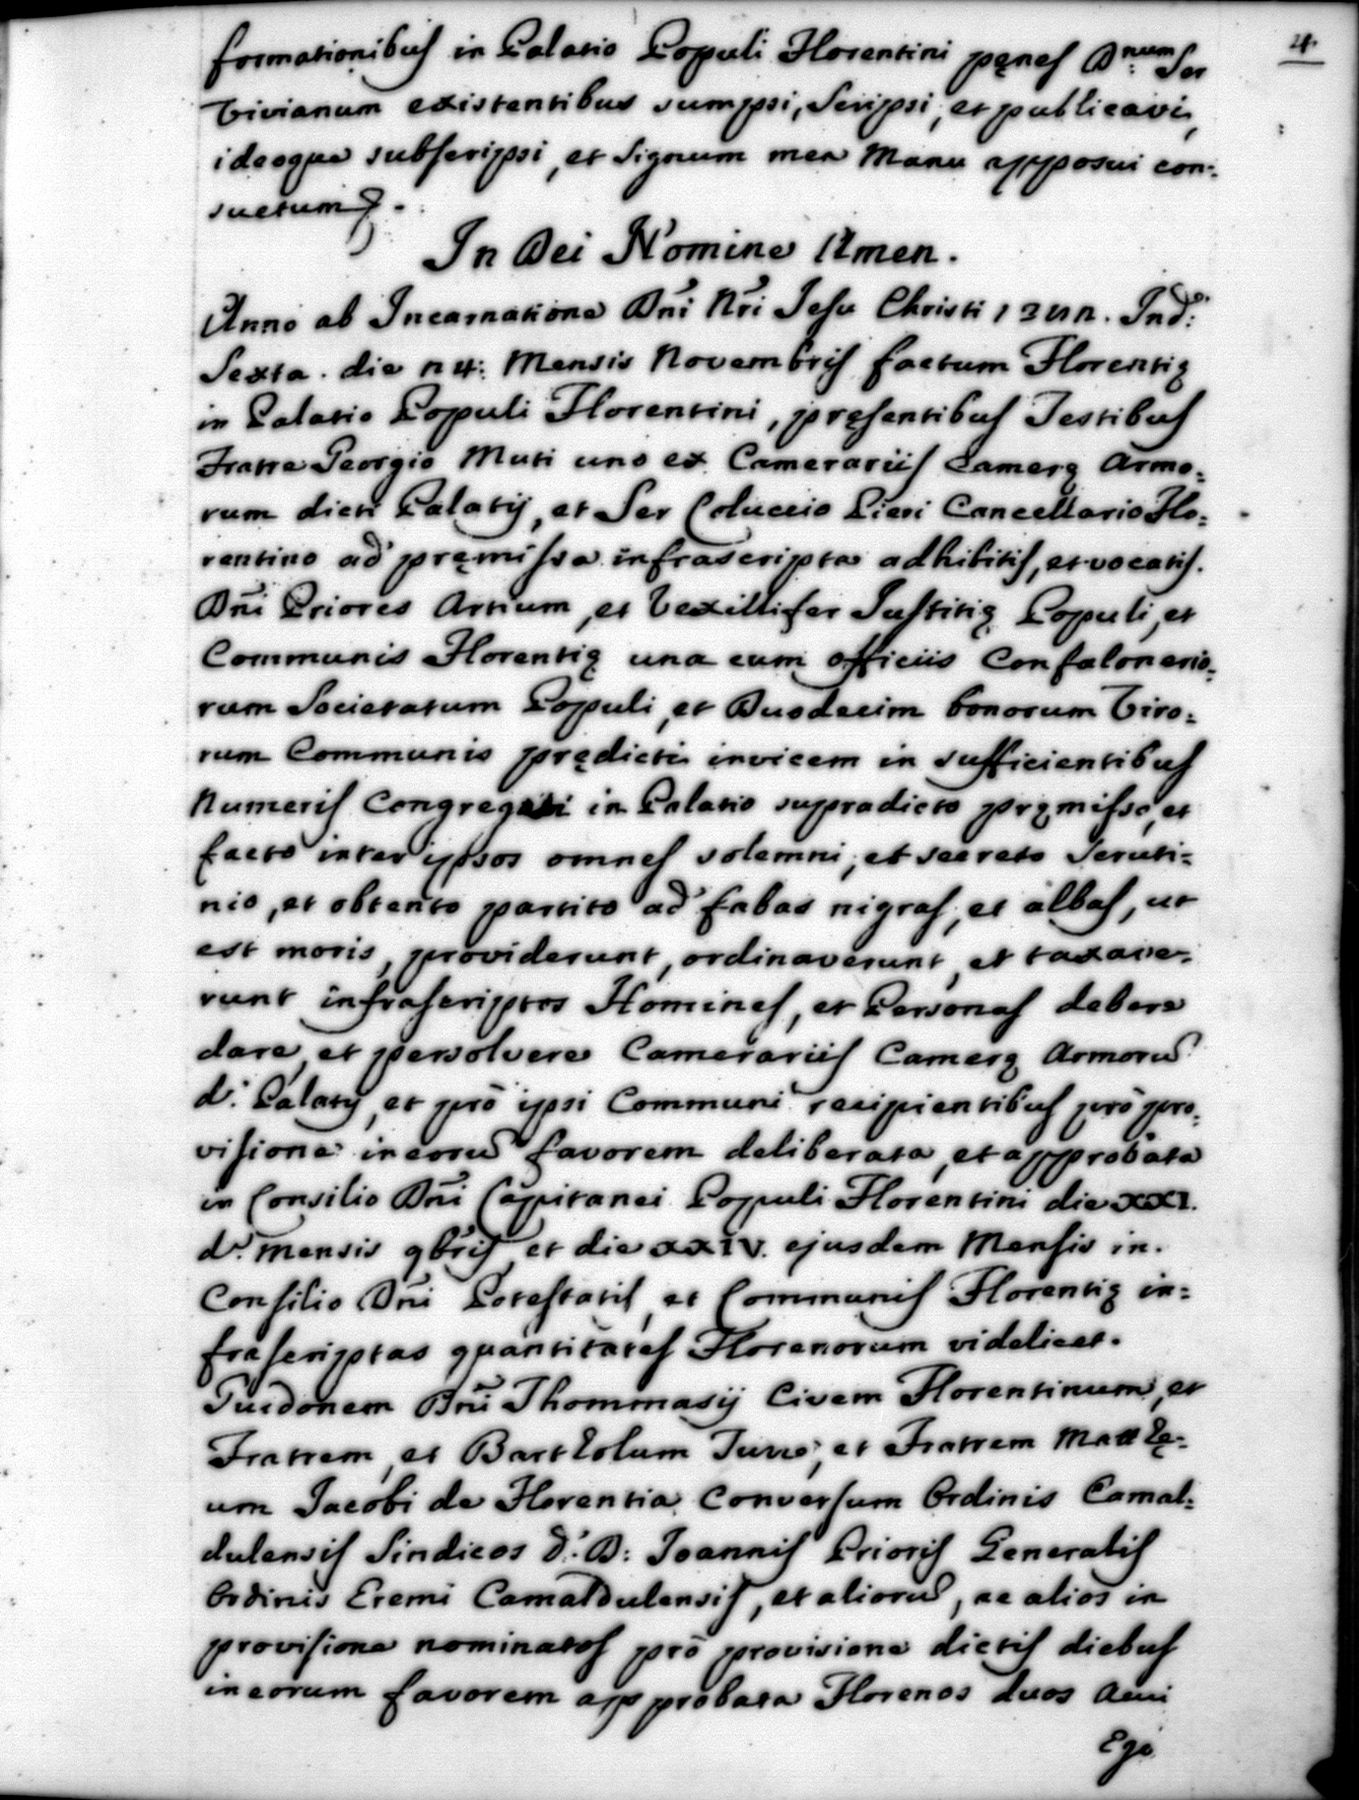 4.
formationibus in Palatio Populi Florentini pęnes D:num Ser
Vivianum existentibus sumpsi, Scripsi, et publicavi,
ideoque subscripsi, et Signum mea Manu apposui con-
suetum
In Dei Nomine Amen.
Anno ab Incarnatione Dñi Nri Jesu Christi Ind:
Sexta. die Mensis Novembris factum Florentię
in Palatio Populi Florentini, pręsentibus Testibus
Fratre Georgio Muti uno ex Camerariis Camerę Armo-
rum dicti Palatij, et Ser Coluccio Pieri Cancellario Flo-
rentino ad pręmissa infrascripta adhibitis, et vocatis.
Dñi Priores Artium, et Vexillifer Justitię Populi, et
Communis Florentię una cum officiis Confalonerio-
rum Societatum Populi, et Duodecim bonorum Viro-
rum Communis prędicti invicem in sufficientibus
Numeris Congregati in Palatio supradicto pręmisso, et
facto inter ipsos omnes solemni, et secreto Scruti-
nio, et obtento partito ad fabas nigras, et albas, ut
est moris, providerunt, ordinaverunt, et taxave-
runt infrascriptos Homines, et Personas debere
dare, et persolvere Camerariis Camerę Armorũ
d: Palatij, et prò ipsi Communi recipientibus prò pro-
visione in eorũ favorem deliberata, et approbata
in Consilio Dñi Capitanei Populi Florentini die XXI.
d: Mensis 9bris, et die XXIV. ejusdem Mensis in
Consilio Dñi Potestatis, et Communis Florentię in-
frascriptas quantitates Florenorum videlicet.
Guidonem Dñi Thommasij Civem Florentinum, et
Fratrem, et Bartholum et Fratrem Matthę-
um Jacobi de Florentia Conversum Ordinis Camal-
dulensis Sindicos d: D: Joannis Prioris Generalis
Ordinis Eremi Camaldulensis, et aliorũ, ac alios in
provisione nominatos prò provisione dictis diebus
in eorum favorem approbata Florenos duos Auri
Ego